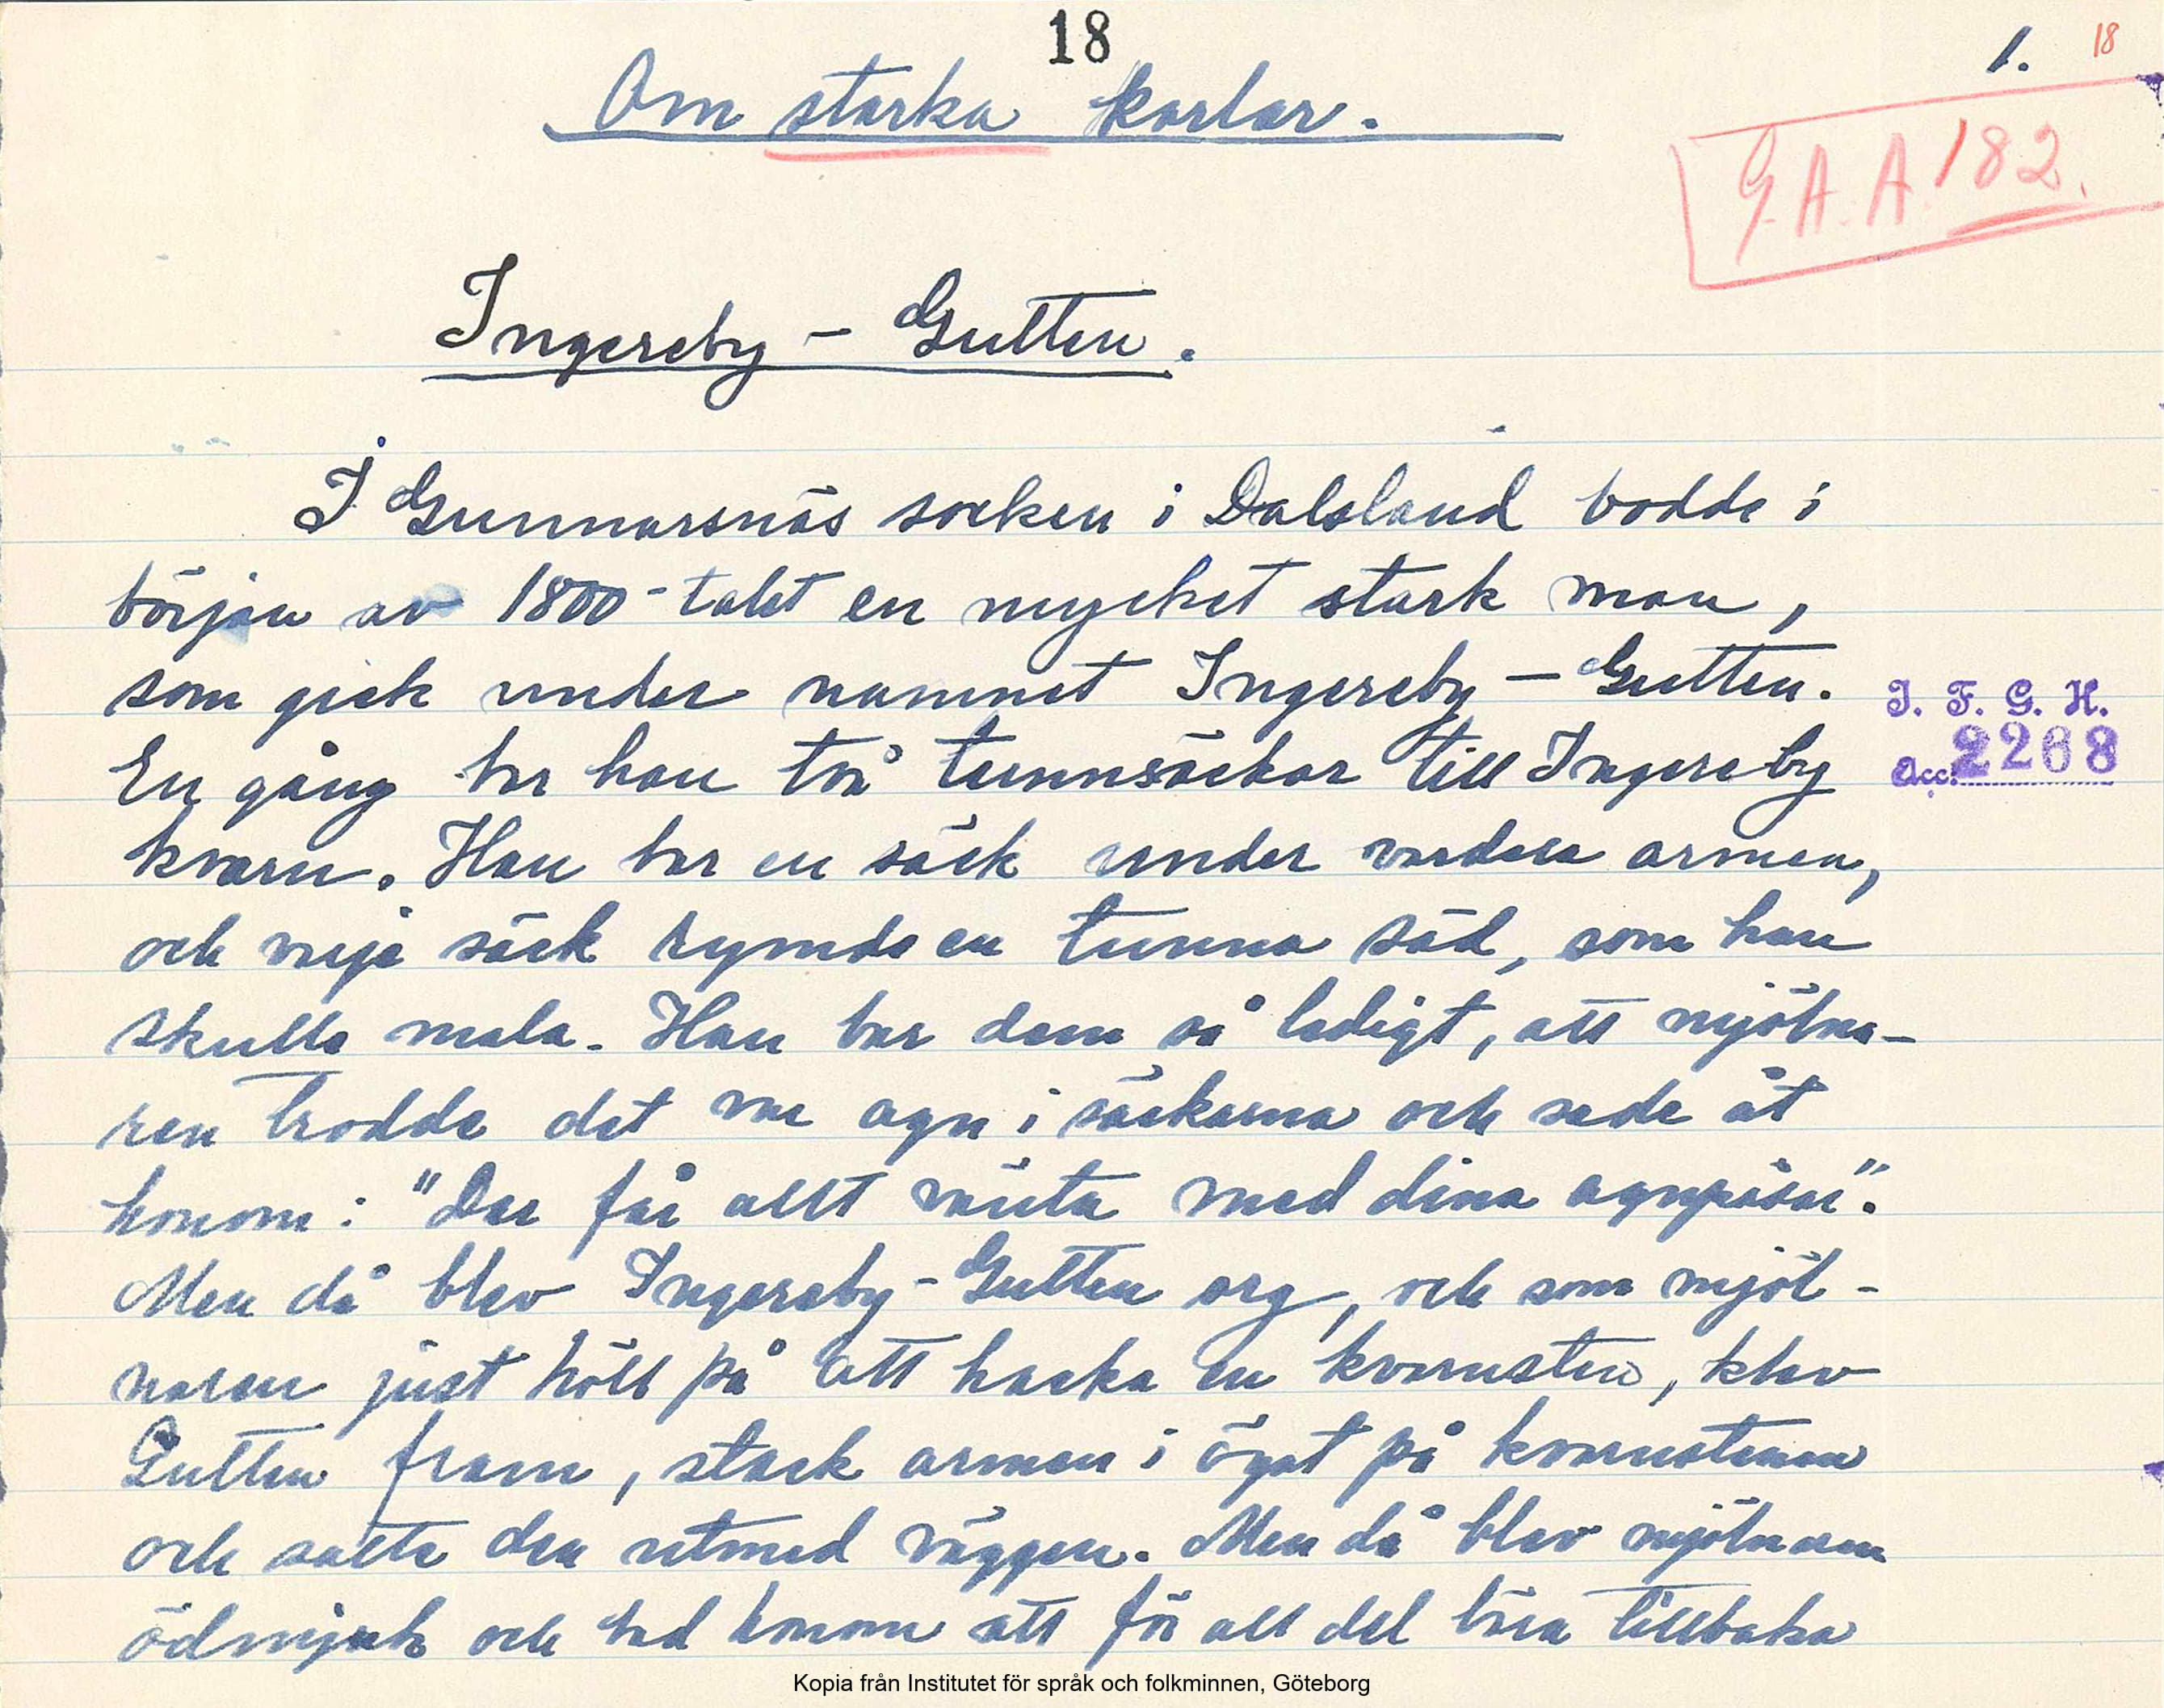 18
1. 18
Om starka karlar.
G.A.A. 182.
Ingereby - Gutten.
I Gunnarsnäs socken i Dalsland bodde i
början av 1800-talet en mycket stark man,
som gick under namnet Ingereby - Gutten.
En gång bar han två tunnsäckar till Ingereby
kvarn. Han bar en säck under vardera armen,
och varje säck rymde en tunna säd, som han
skulle mala. Han bar dem så ledigt, att mjölna-
ren trodde det var agn i säckarna och sade åt
honom: "Der får allt vänta med dina agnpåsar".
Men då blev Ingereby - Gutten arg, och som mjöl-
naren just höll på att hacka en kvarnsten, klev
Gutten fram, stack armen i ögat på kvarnstenen
och satte den utmed väggen. Men då blev mjölnaren
ödmjuk och bad honom att för all del bära tillbaka
I. F. G. H.
Acc. 2268
Kopia från Institutet för språk och folkminnen, Göteborg